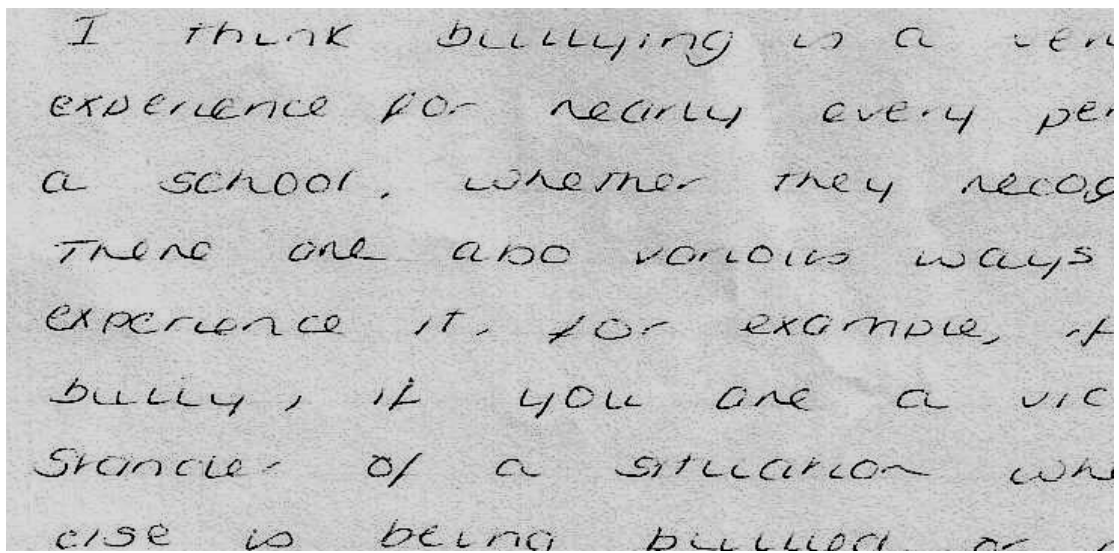 I think bullying is a ver
experience for nearly every per
a school, whether they recog
There are also various ways
experience it, for example, if
bully, if you are a vic
stander of a situation whe
else is being bullied or